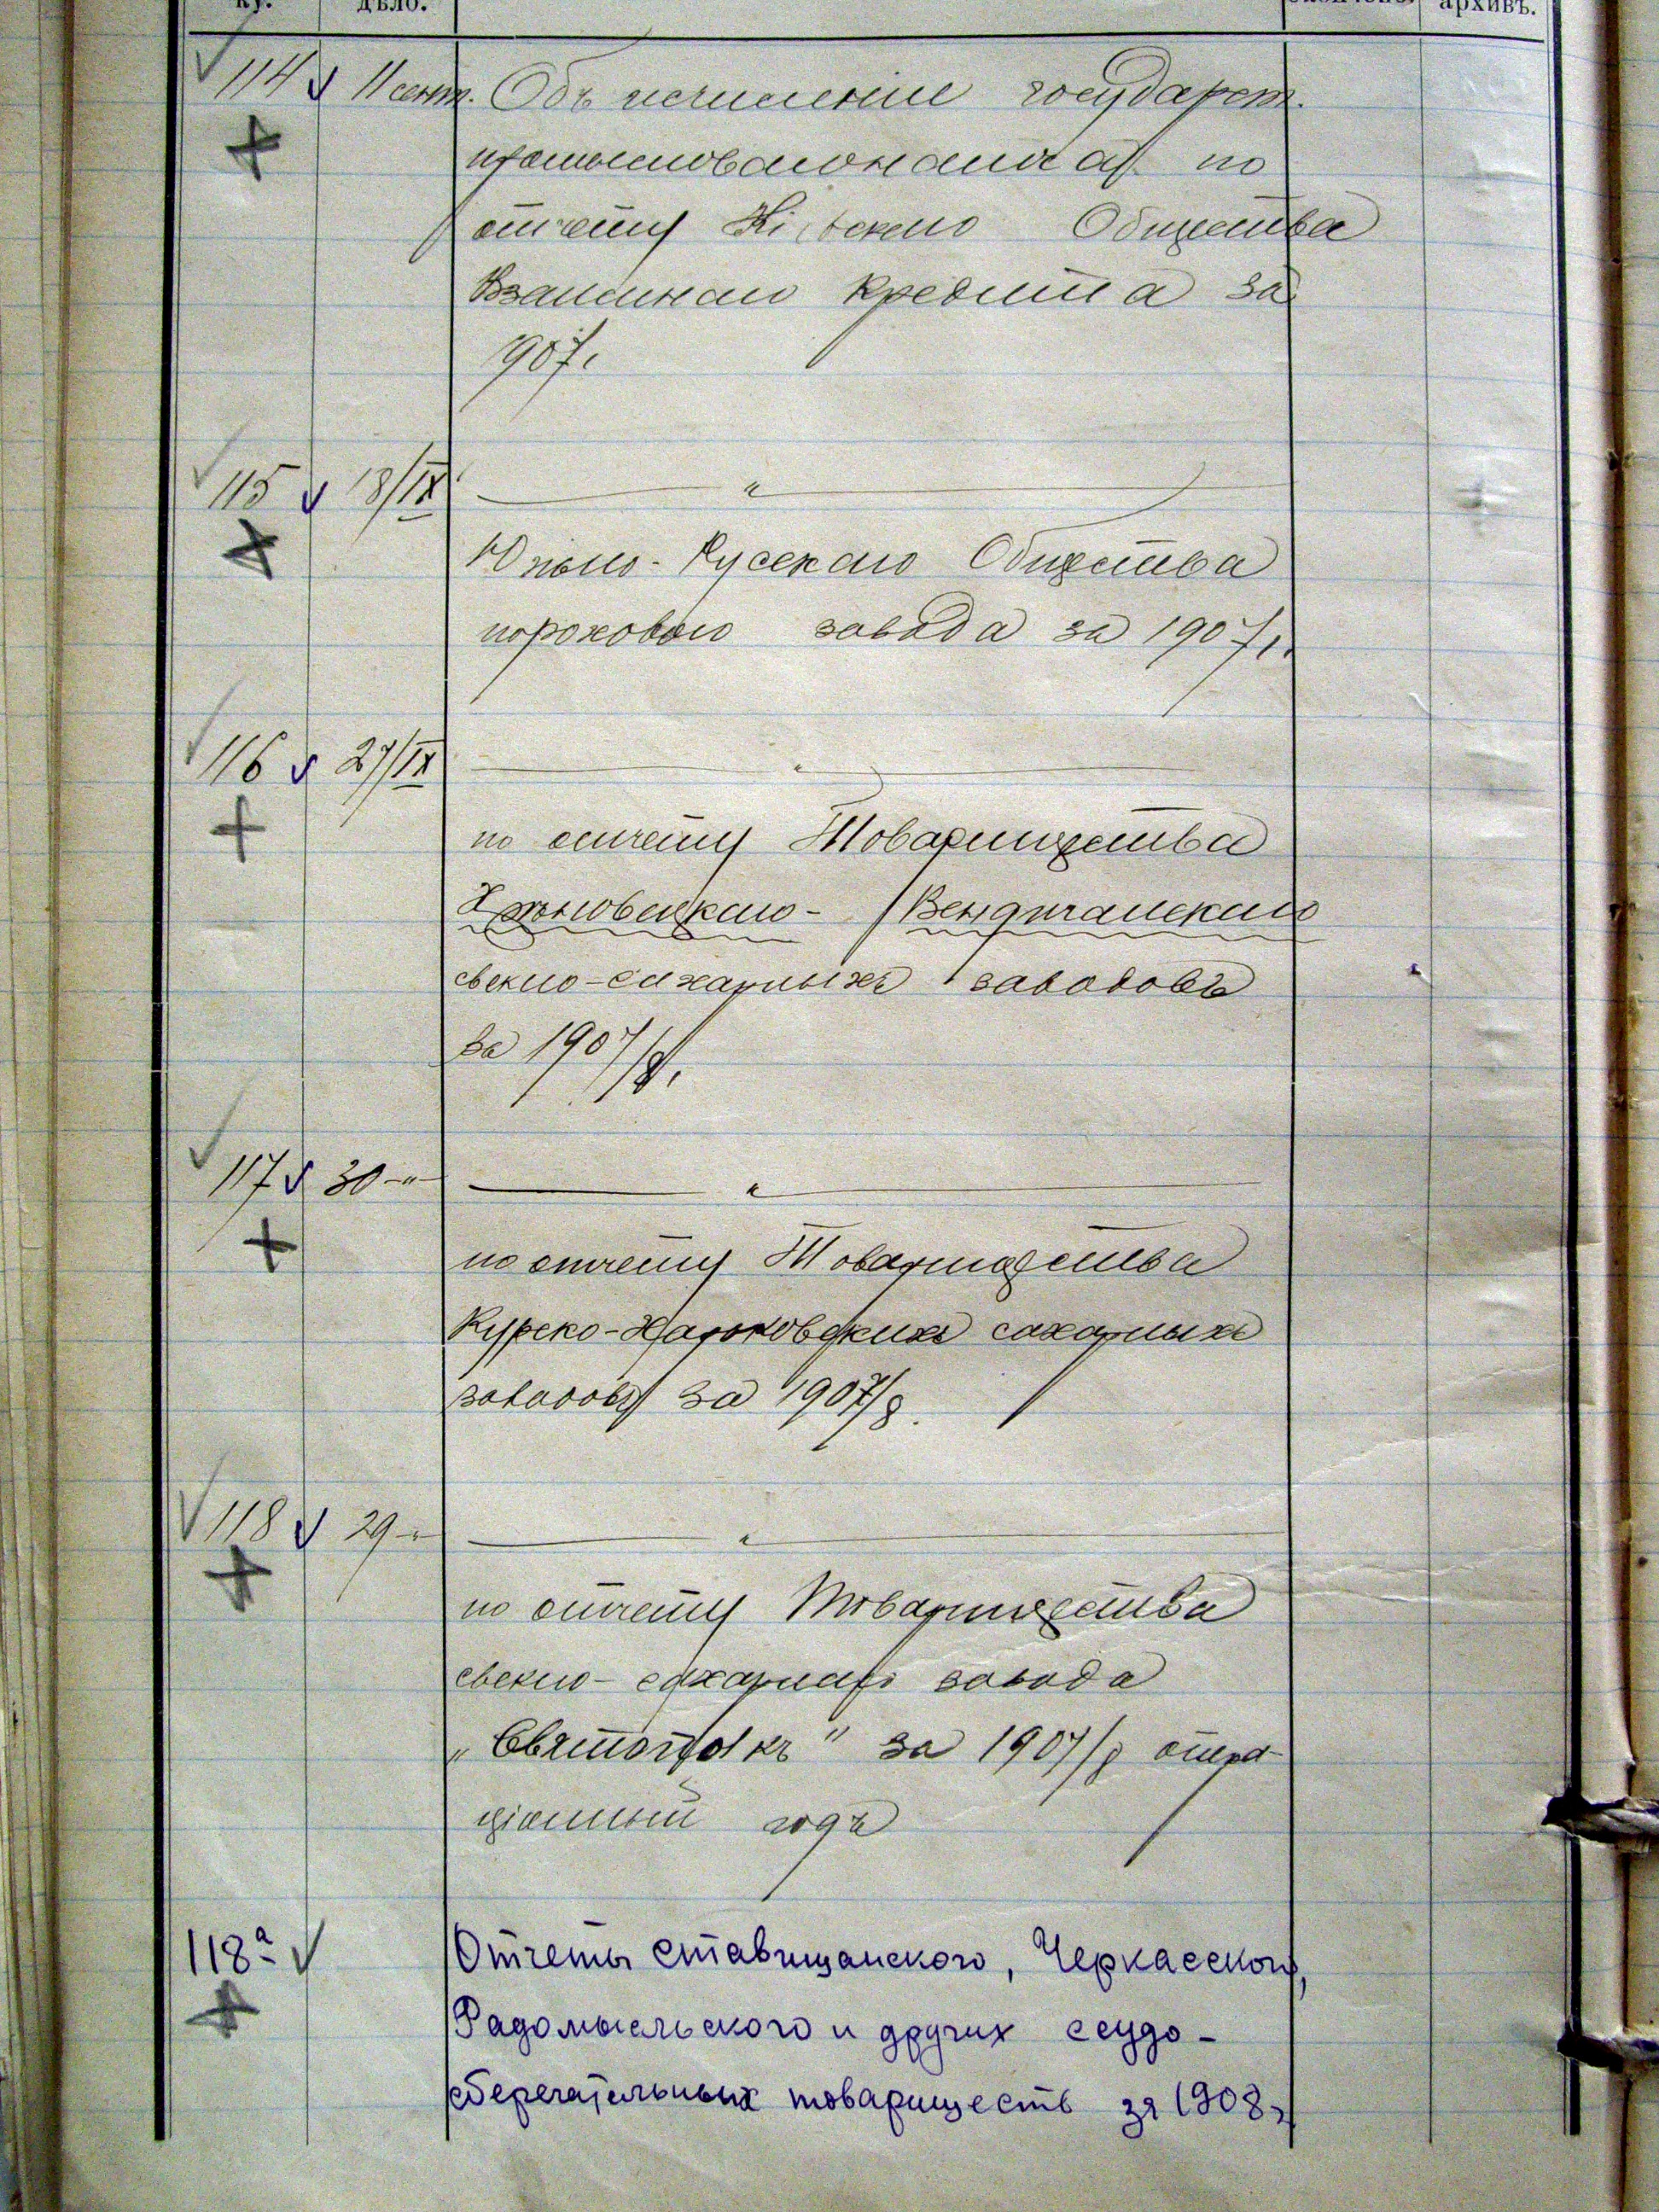 ку. дѣло. архивъ.
114 11 сент. Объ исчисленіи государст.
промысловаго налога по
отчету Кіевскаго Общества
Взаимнаго Кредита за
1907 г.
115 18/IX — " —
Южно-Русскаго Общества
пороховаго завода за 1907 г.
116 27/IX — " —
по отчету Товарищества
Вендичанскаго
свекло-сахарныхъ заводовъ
за 1907/8 г.
117 30 — " — — " —
по отчету Товарищества
Курско-Харьковскихъ сахарныхъ
заводовъ за 1907/8.
118 29 — " — — " —
по отчету Товарищества
свекло-сахарнаго завода
„Святополкъ" за 1907/8 опера-
ціонный годъ
118а Отчеты Ставищанского, Черкасского,
Радомысльского и других ссудо-
сберегательных товариществ за 1908 г.